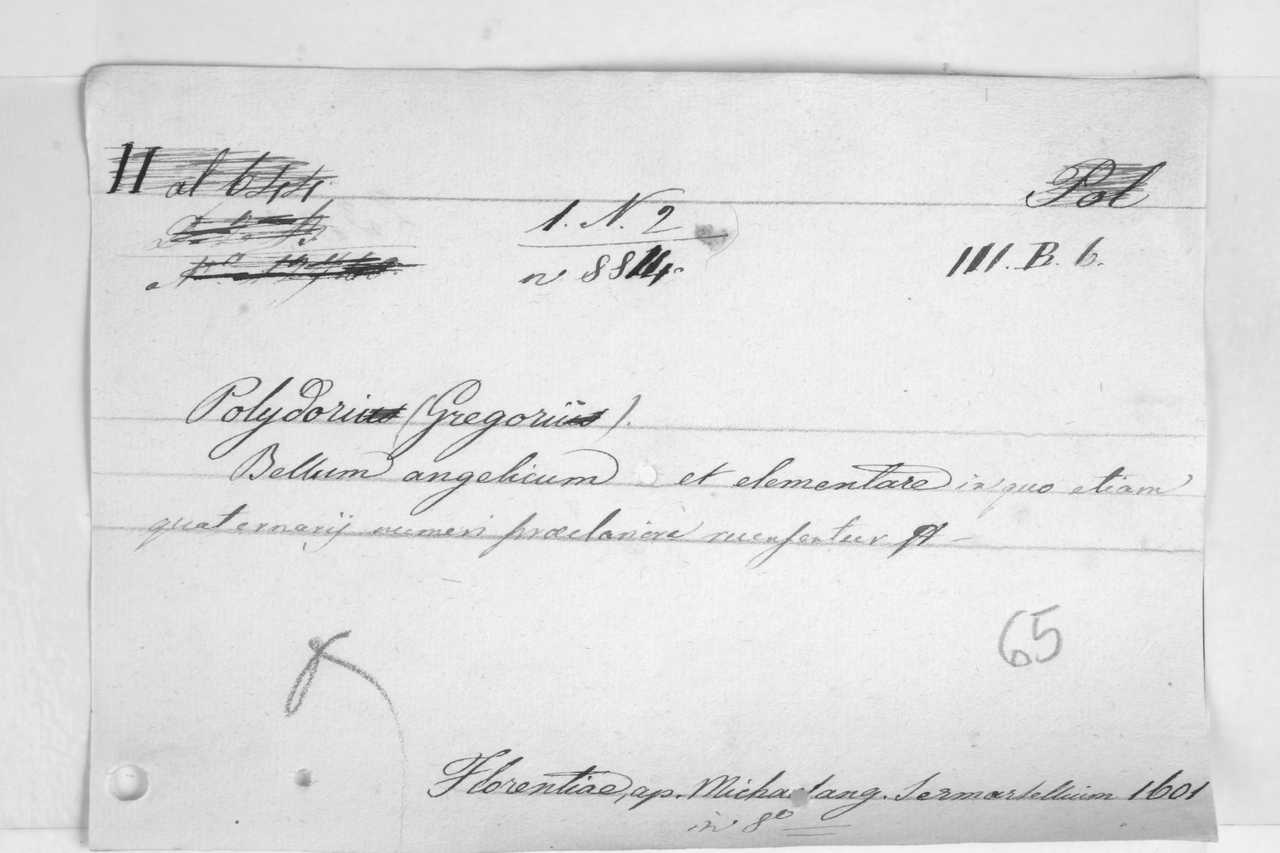 II al 644 Pol
1. N. 2
n 8814. III. B. 6.
Polydorius (Gregorius).
Bellum angelicum et elementare in quo etiam
quaternarij numeri præclariora recensentur
65
Florentiae, ap. Michaelang. Sermartellium 1601
in 8°